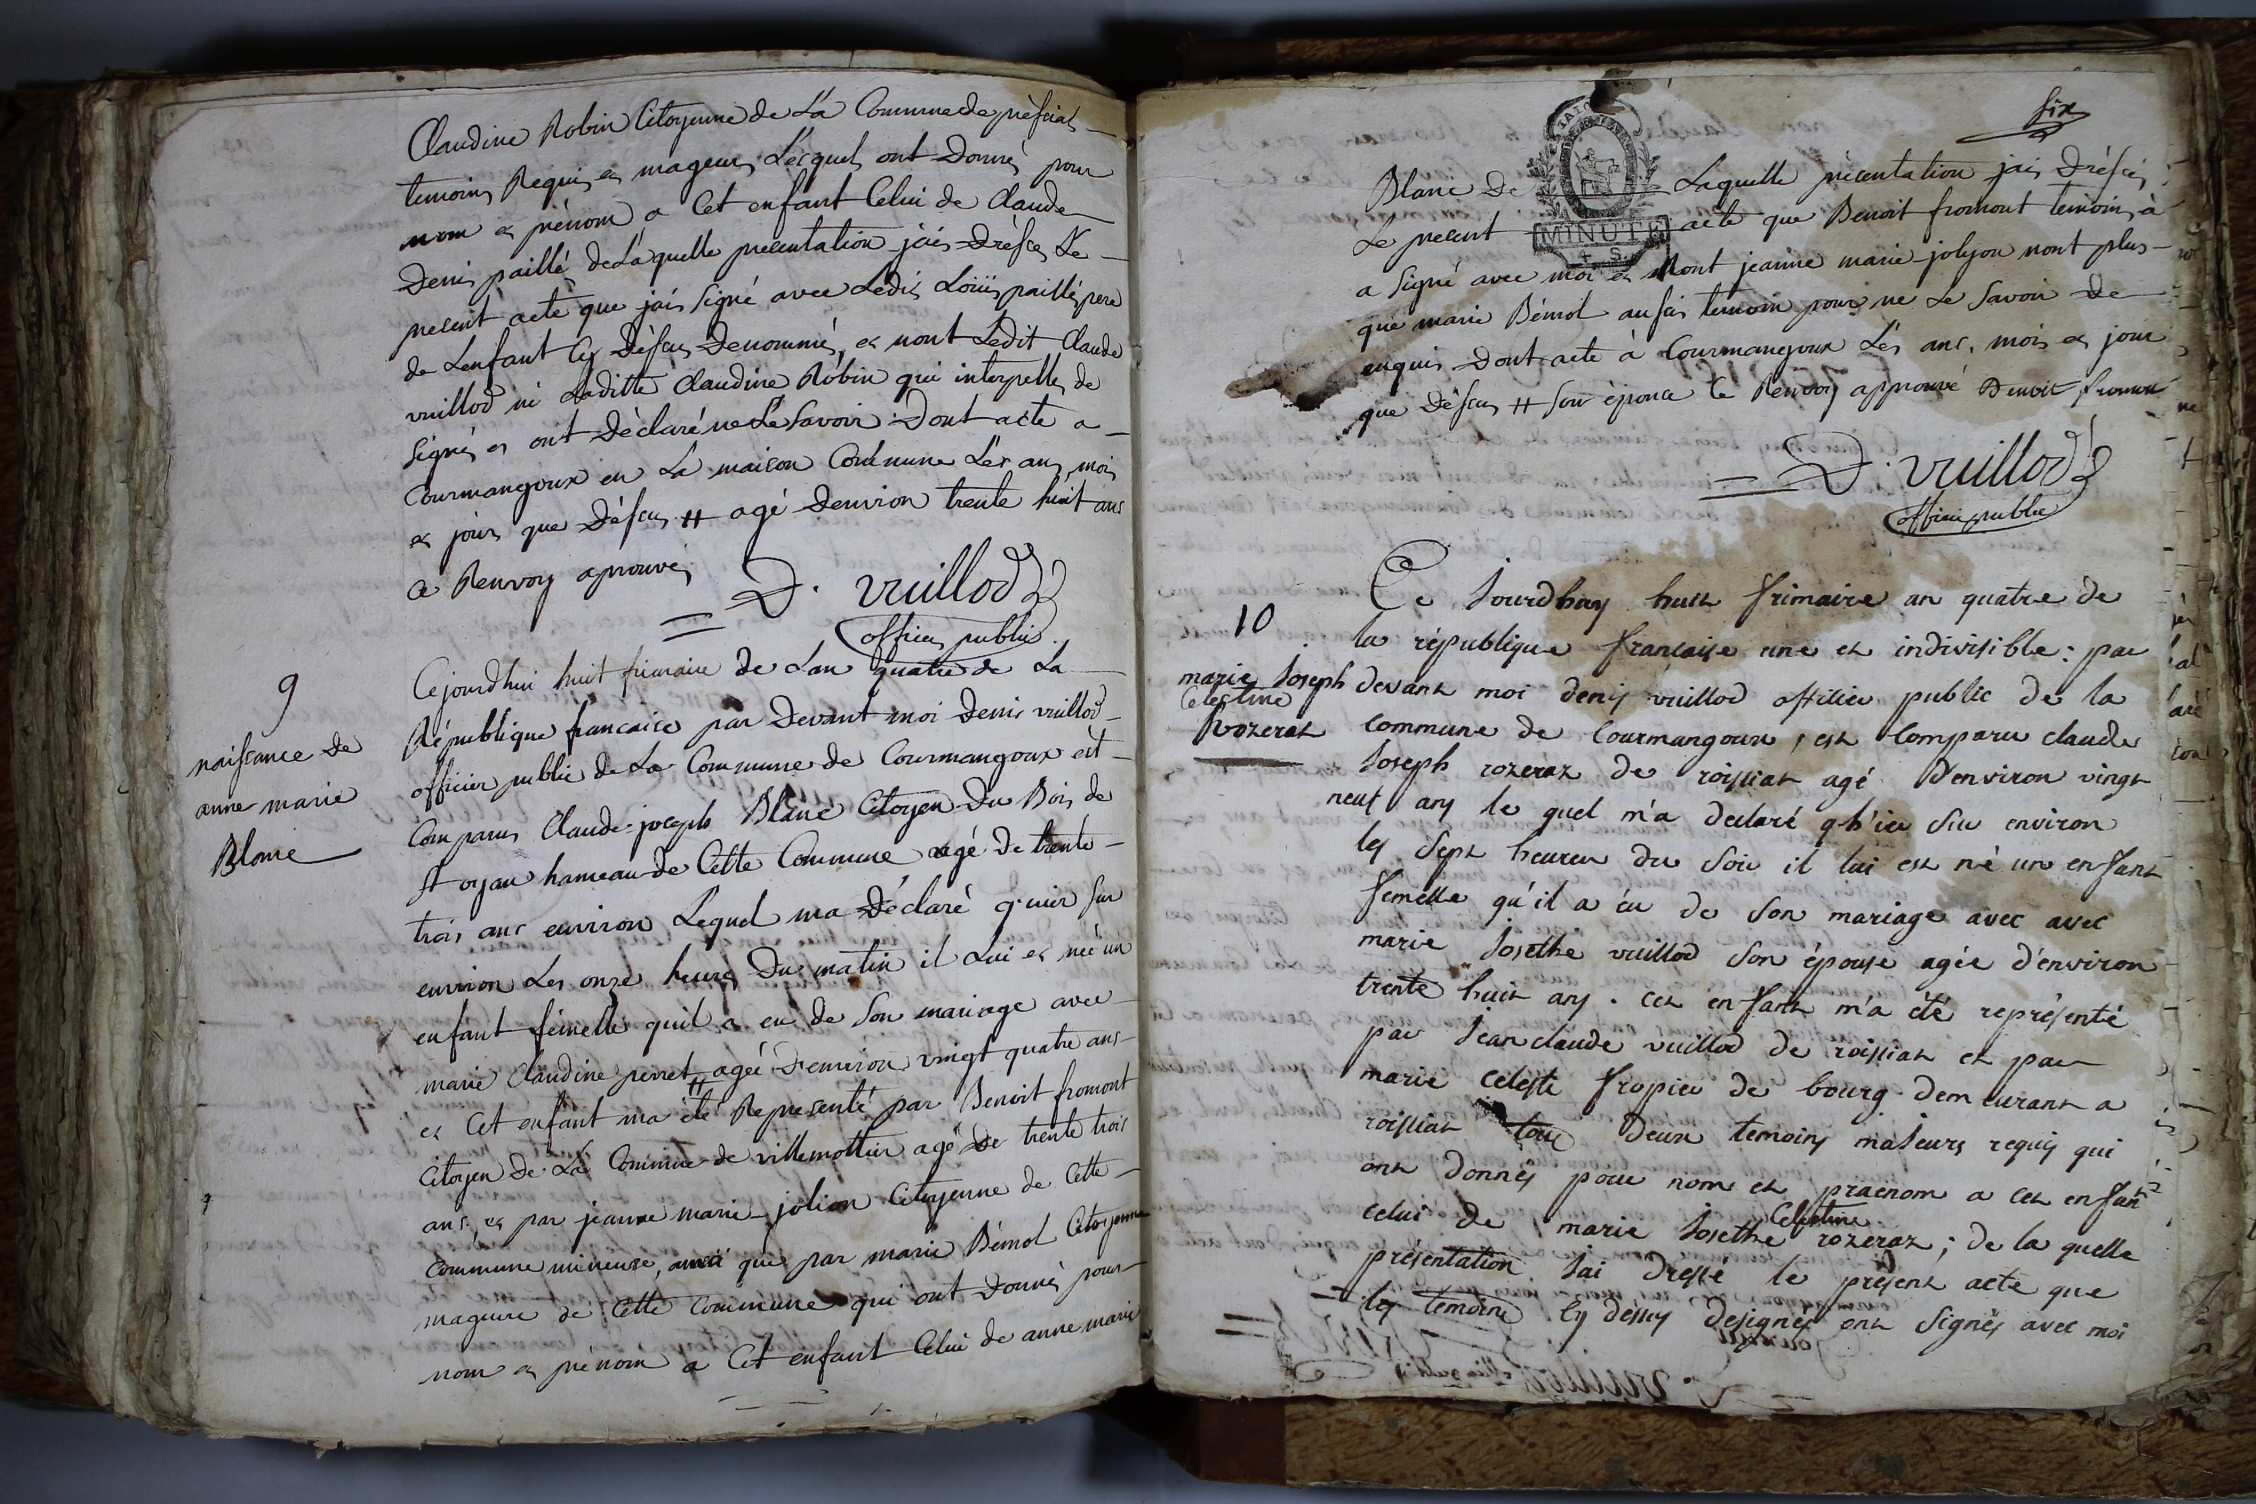 Claudine Robin Citoyenne de La Commune de présiat
temoins Requis et mageurs Lesquels ont Donnés pour
nom et prénom a Cet enfant Celui de Claude
Denis paillé de Laquelle presentation jais Dréssés Le
present acte que jais Signé avec Ledis Loüis paillé pere
de Lenfant Cy Déssus Denommés, et nont Ledit Claude
vuillod ni Laditte Claudine Robin qui interpellés de
Signés et ont Déclaré ne Le Savoir Dont acte a
Courmangoux en La maison Commune Les ans mois
et jours que Déssus # agé Denvion trente huit ans
Ce Renvoy aprouvés
D. vuillod
officier public
9
naissance de
anne marie
Blanc
Cejourdhui huit frimaire de Lan quatre de La
République francaise par Devant moi Denis vuillod
officier public de La Commune de Courmangoux est
Comparus Claude-joseph Blanc Citoyen Du Bois de
st oyan hameau de Cette Commune agé de trente
trois ans environ Lequel ma Déclaré q.uier sur
environ Les onze heures Du matin il Lui es née un
enfant fémelle quil a eu de Son mariage avec
marie Claudine perret # agée Denviron vingt quatre ans
et Cet enfant ma été Representé par Benoit fromont
Citoyen de La Commune de villemottier agé de trente trois
ans, et par jeanne marie jolion Citoyenne de Cette
Commune mineure, ainsi que par marie Bémol Citoyenne
mageure de Cette Commune qui ont Donnés pour
nom et prénom a Cet enfant Celui de anne marie
six
Blanc De Laquelle présentation jais Dréssés
Le present acte que Benoit fromont temoin à
MINUTE
a Signé avec moi et Nont jeanne marie jolyon nont plus
que marie Bémol aussis temoin pour ne Le Savoir De
enquis Dont acte à Courmangoux Les ans, mois et jour
que Déssus # son éponce Ce Renvoy approuvé Benoit fromon
D. vuillod
officier public
10
marie Joseph
Celestine
Rozerat
Ce Jourdhuy huit frimaire an quatre de
la république francaise une et indivisible: par
devant moi denis vuillod officier public de la
commune de Courmangoux, est Comparu claude
Joseph rozeraz de roissiat agé d'environ vingt
neuf ans le quel m'a declaré qh'ier Sur environ
les Sept heures du Soir il lui est né un enfant
femelle qu'il a èu de Son mariage avec avec
marie Josethe vuillod Son épouse agée d'environ
trente huit ans. cet enfant m'a été représenté
par Jean claude vuillod de roissiat et par
marie celeste fropier de bourg demeurant a
roissiat tous Deux temoins majeurs requis qui
ont donnés pour nom et praenom a cet enfant
Celestine
celui de marie Josethe rozeraz; de la quelle
présentation Jai dressé le présent acte que
les temoins Cy dessus designés ont Signés avec moi